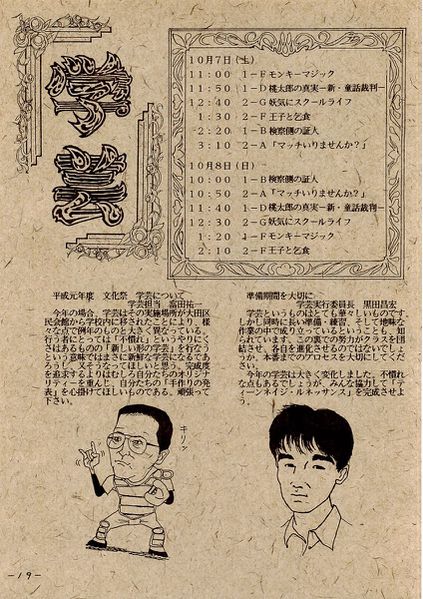 学芸
10月7日(土)
11:00 1-Fモンキーマジック
11:50 1-D桃太郎の真実−新・童話裁判−
12:40 2-G妖気にスクールライフ
1:30 2-F王子と乞食
2:20 1-B検察側の証人
3:10 2-A「マッチいりませんか?」
10月8日(日)
10:00 1-B検察側の証人
10:50 2-A「マッチいりませんか?」
11:40 1-D桃太郎の真実−新・童話裁判−
12:30 2-G妖気にスクールライフ
1:20 1-Fモンキーマジック
2:10 2-F王子と乞食
平成元年度 文化祭 学芸について
学芸担当 富田祐一
今年の場合、学芸はその実施場所が大田区
民会館から学校内に移されたことにより、様
々な点で例年のものと大きく異なっている。
行う者にとっては「不慣れ」というやりにく
さはあるものの「新しい形の学芸」を行なう
という意味ではまさに新鮮な学芸になるであ
ろうし、又そうなってほしいと思う。完成度
を追求するよりはむしろ自分たちのオリジナ
リティーを重んじ、自分たちの「手作りの発
表」を心掛けてほしいものである。頑張って
下さい。
準備期間を大切に。
学芸実行委員長 黒田昌宏
学芸というものはとても華々しいものです。
しかし同時に長い準備・練習、そして地味な
作業の中で成り立っているということも、知
られています。この裏での努力がクラスを団
結させ、各自を進化させるのではないでしょ
うか。本番までのプロセスを大切にしてくだ
さい。
今年の学芸は大きく変化しました。不慣れ
な点もあるでしょうが、みんな協力して「テ
ィーンネイジ・ルネッサンス」を完成させよ
う。
キリッ
−19−